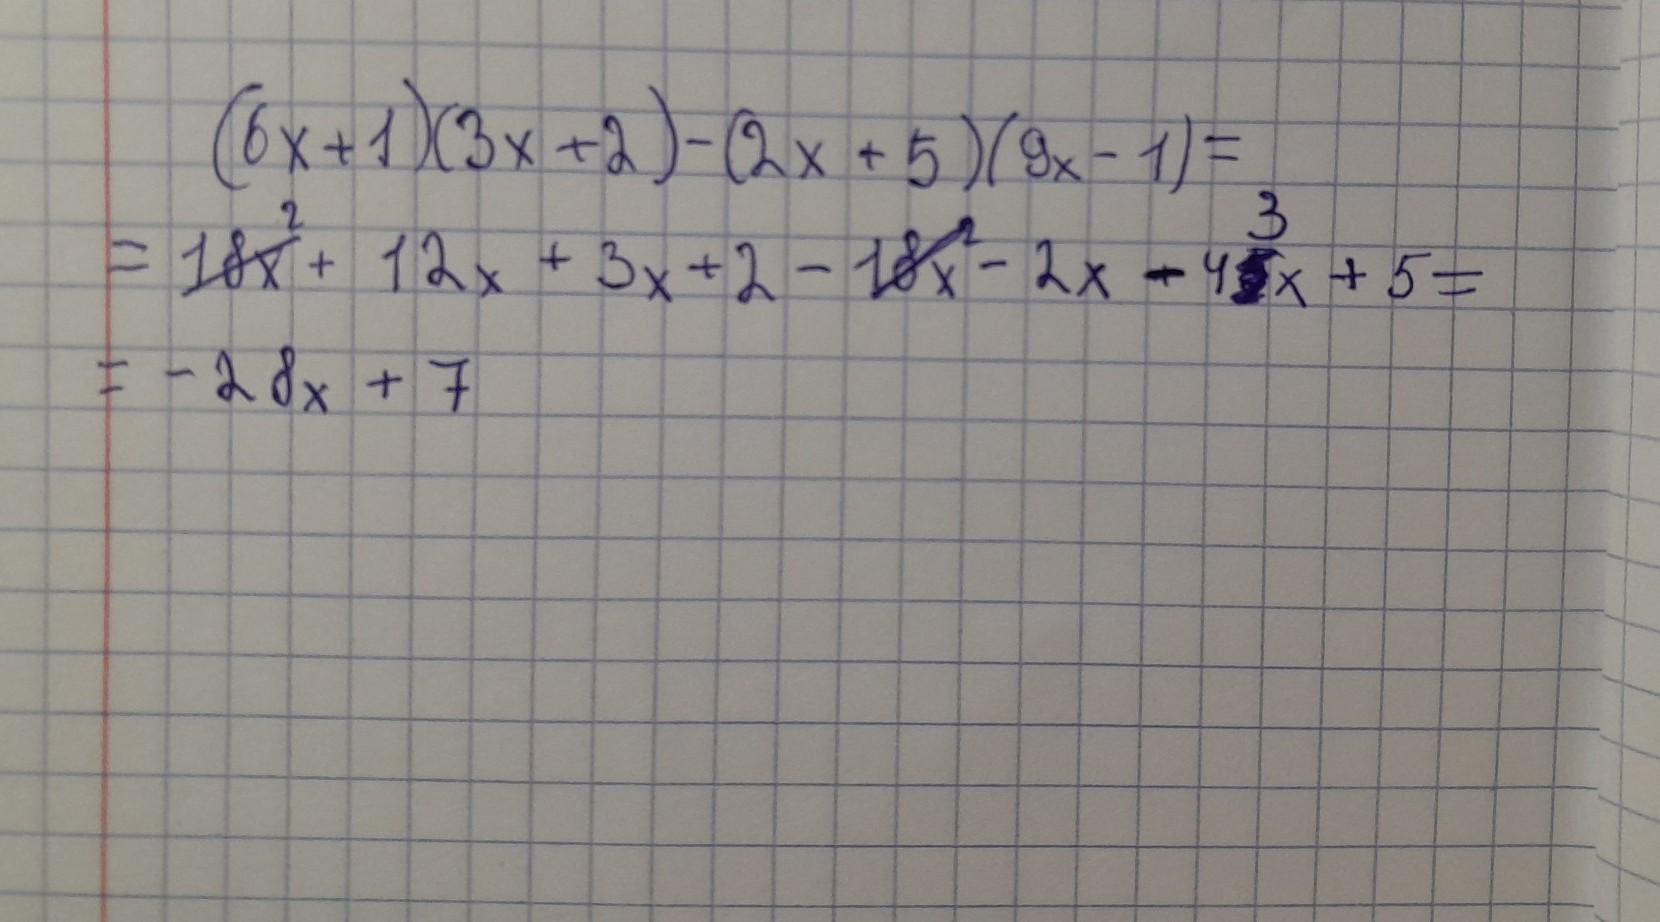 (6x+1)(3x+2)-(2x+5)(9x-1)=
= 18x² + 12x + 3x + 2 - 18x² - 2x - 43x + 5 =
= -28x + 7